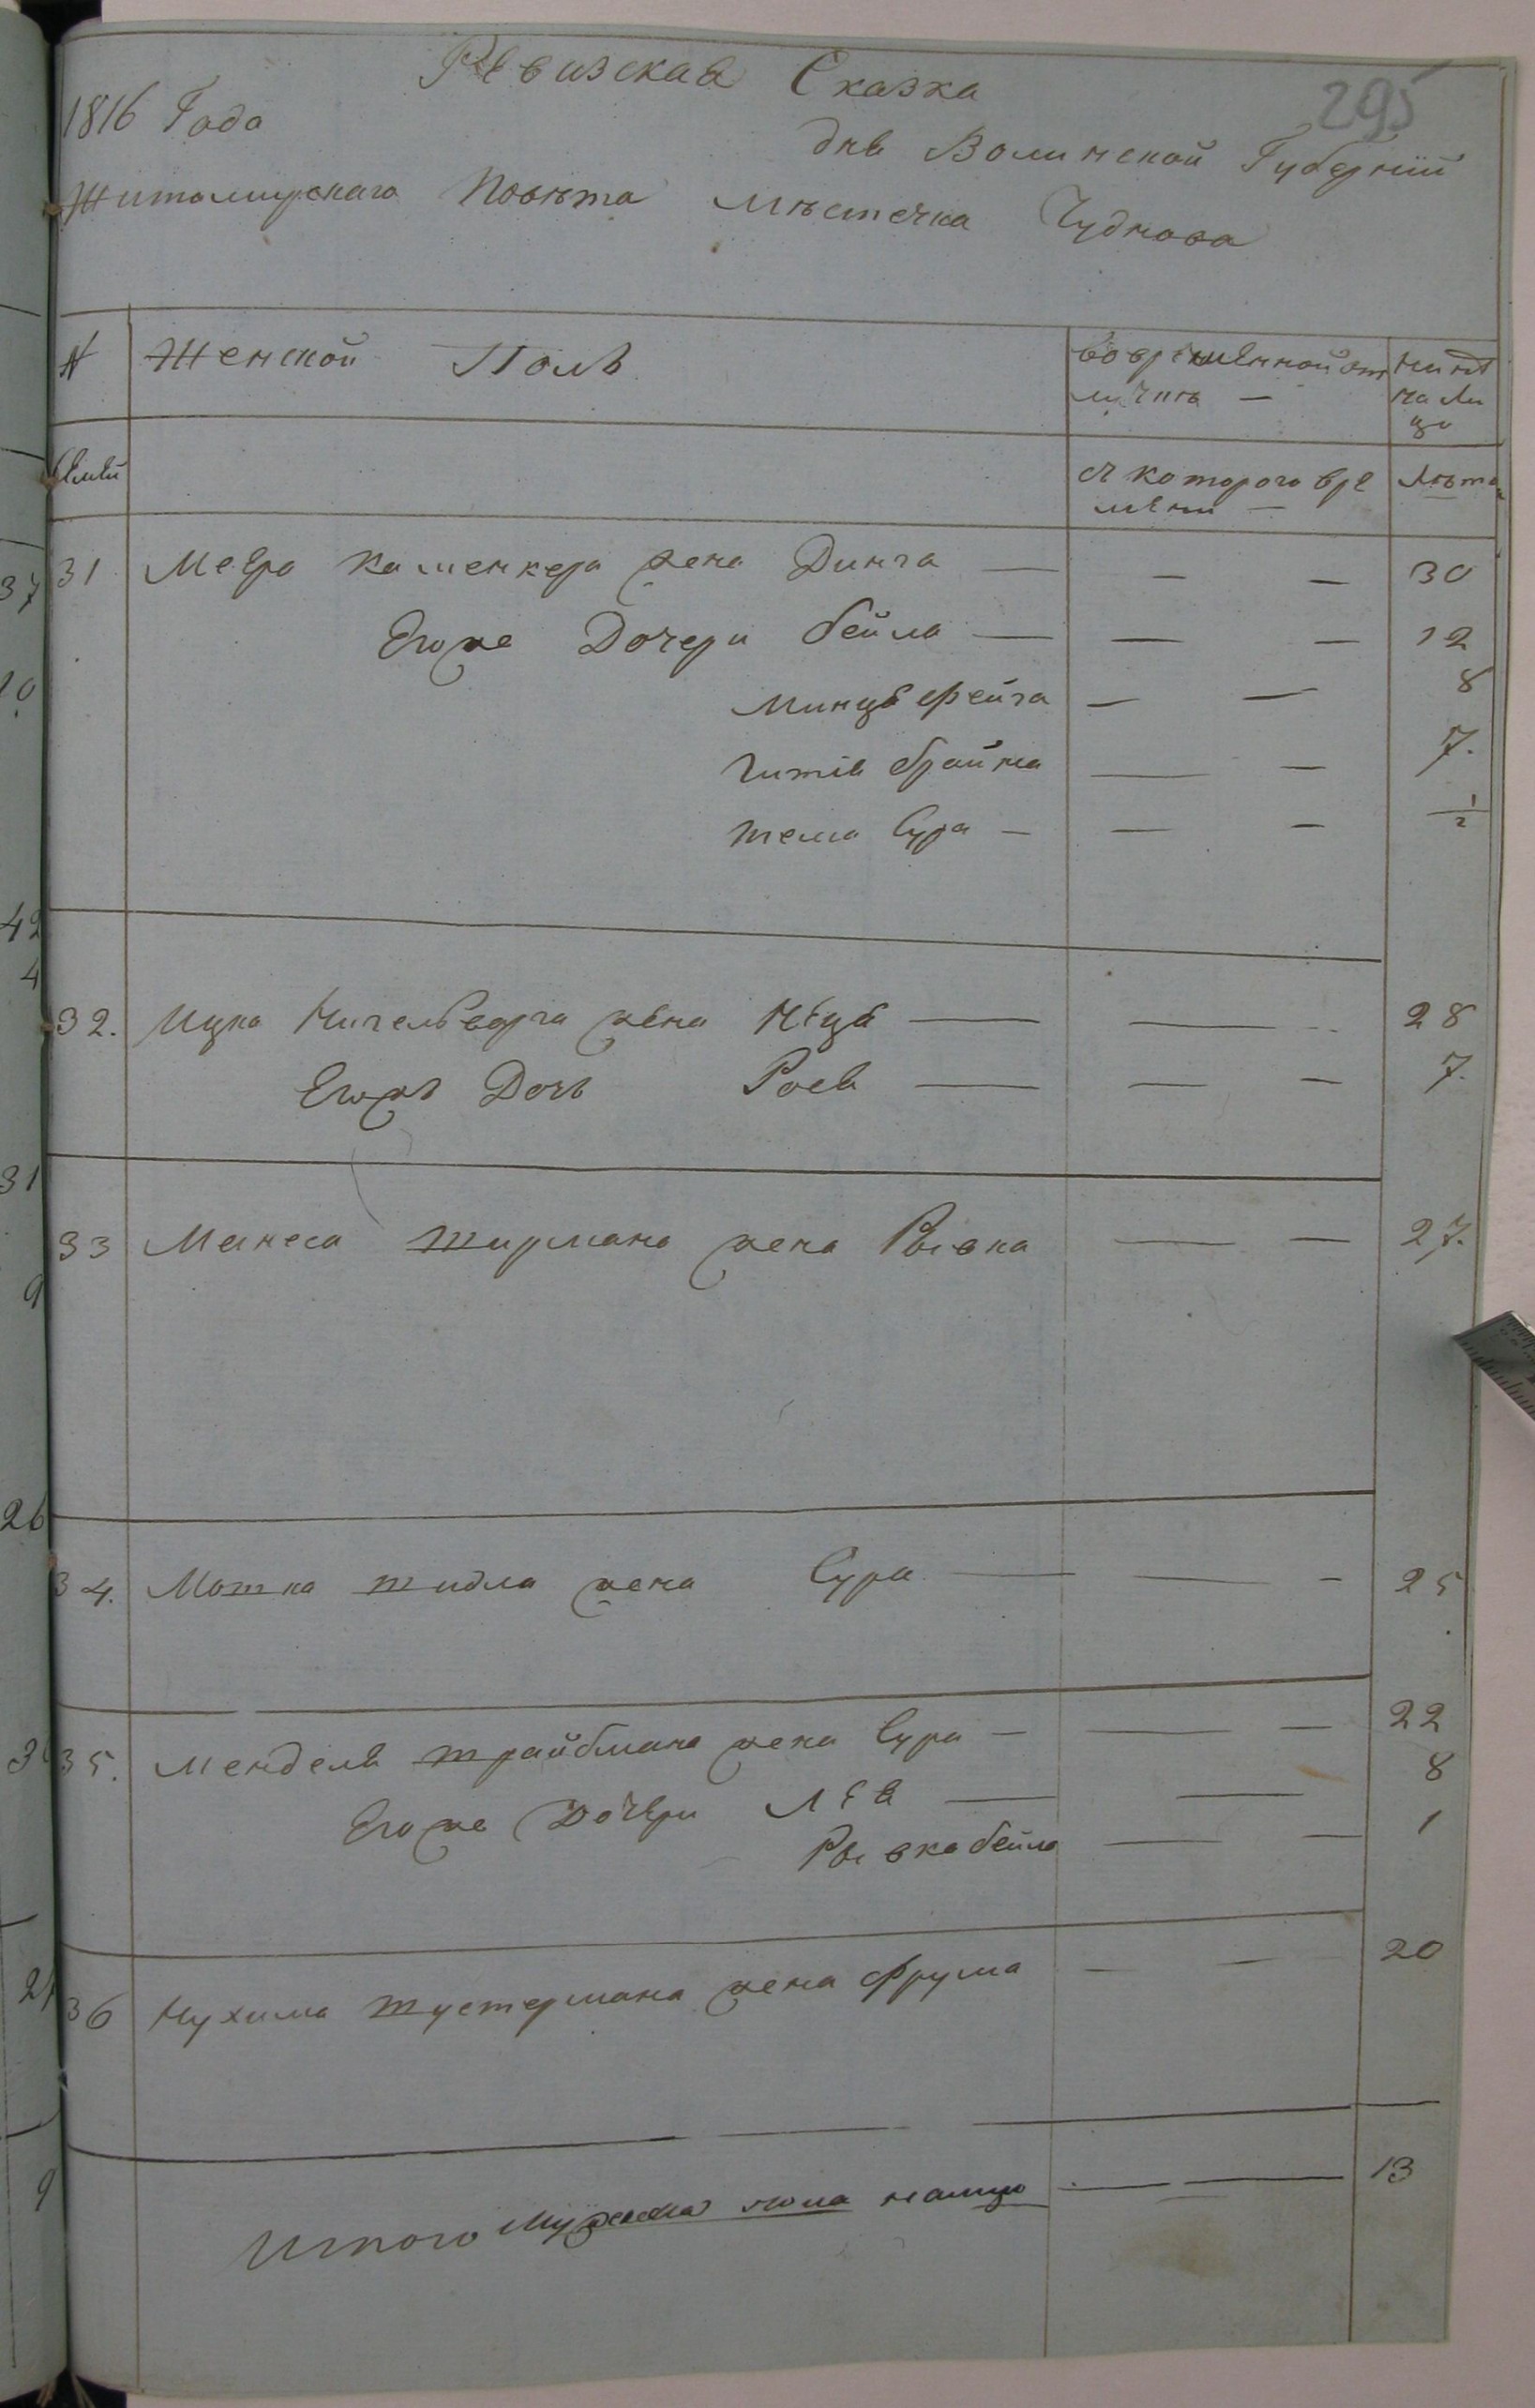 Ревизская Сказка
295
1816 Года
для Волинской Губернии
Житомирскаго Повѣта мѣстечка Чуднова
№ Женской Полъ во временной от нинѣ
лучкѣ — на ли
цо
семей с котораго вре Лѣта
мени —
31 Меера Каменкера жена Динга — — — 30
Егоже Дочери бейла — — — 12
Минця фейга — — 8
гитля брайна — — 7.
тема Сура — — — 1/2
32. Ицка жена Неця — — 28
Егожъ Дочь Рося — — — 7.
33 Манеса Штирмана жена Рывка — — 27.
34. Мошка Шидла жена Сура — — — 25
35. Менделя Трайбмана жена Сура — — — 22
Егоже Дочери Лея — — 8
Рывка бейла — — 1
36 Нухима Шустермана жена Фрума — — 20
Итого налицо — — 13
37
10
42
4
31
9
26
21
9